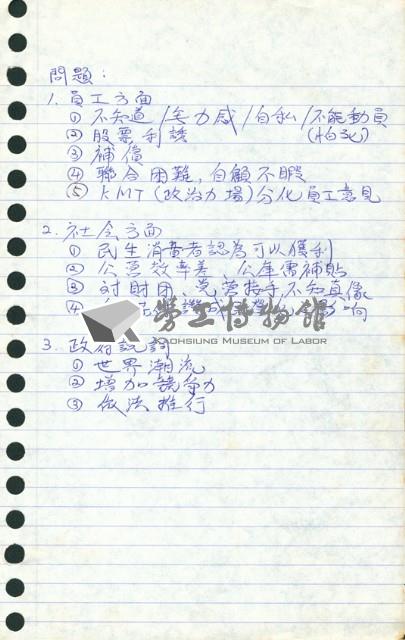 問題：
1. 員工方面
① 不知道/無力感/自私/不能動員
② 股票利誘 (怕死)
③ 補償
④ 聯合困難，自顧不暇
⑤ KMT (政治力場) 分化員工意見
2. 社会方面
① 民生消費者認為可以獲利
② 公營效率差、公庫需補貼
③ 对財团、党營接手，不知真像
④ 响
勞工博物館
KAOHSIUNG MUSEUM OF LABOR
3. 政府說詞
① 世界潮流
② 增加競爭力
③ 依法推行